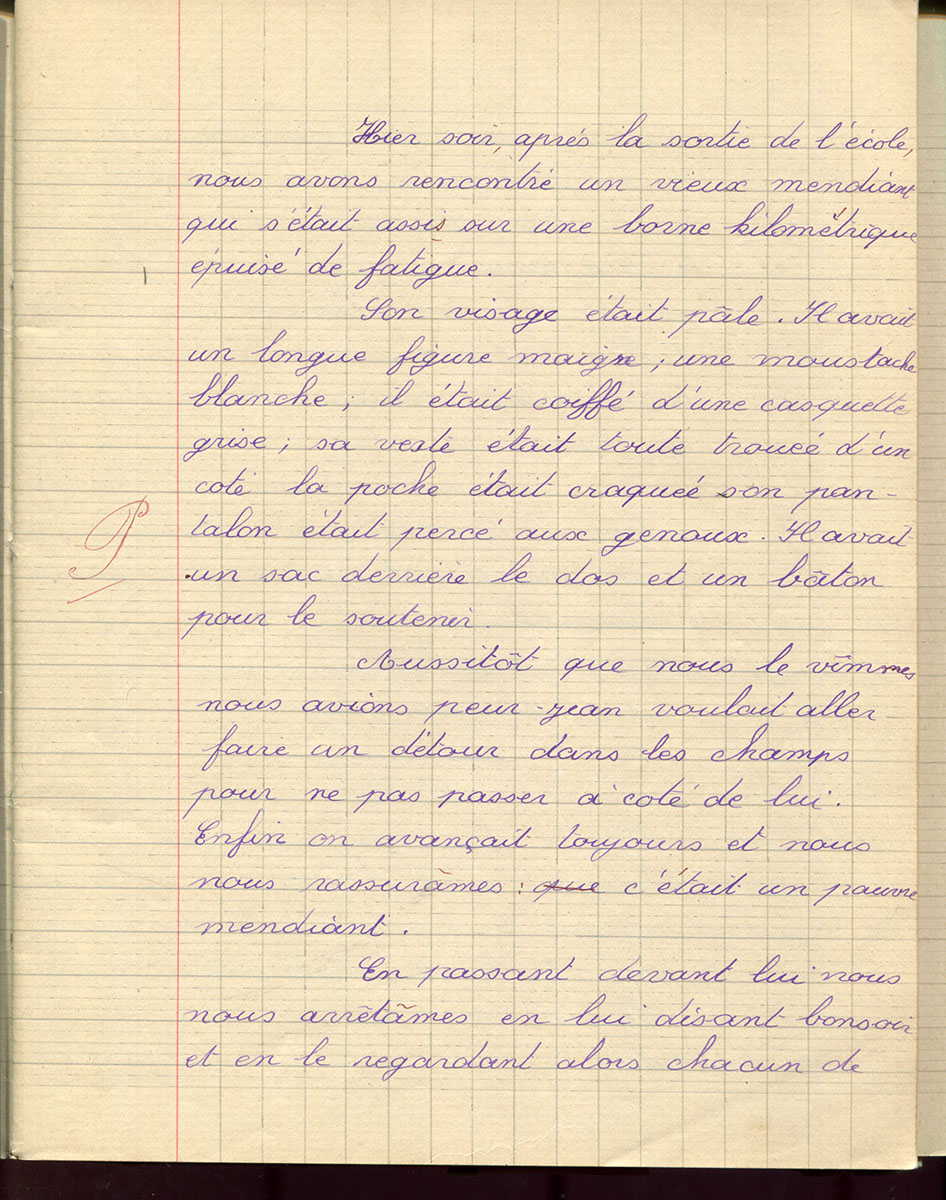 Hier soir, après la sortie de l'école,
nous avons rencontré un vieux mendiant
qui s'était assis sur une borne kilométrique
épuisé de fatigue.
Son visage était pâle. Il avait
un longue figure maigre ; une moustache
blanche ; il était coiffé d'une casquette
grise ; sa veste était toute trouée d'un
coté la poche était craqueé son pan-
talon était percé aux genoux. Il avait
un sac derrière le dos et un bâton
pour le soutenir.
Aussitôt que nous le vîmmes
nous avions peur - jean voulait aller
faire un détour dans les champs
pour ne pas passer à coté de lui.
Enfin on avançait toujours et nous
nous rassurâmes : que c'était un pauvre
mendiant.
En passant devant lui nous
nous arrêtâmes en lui disant bonsoir
et en le regardant alors chacun de